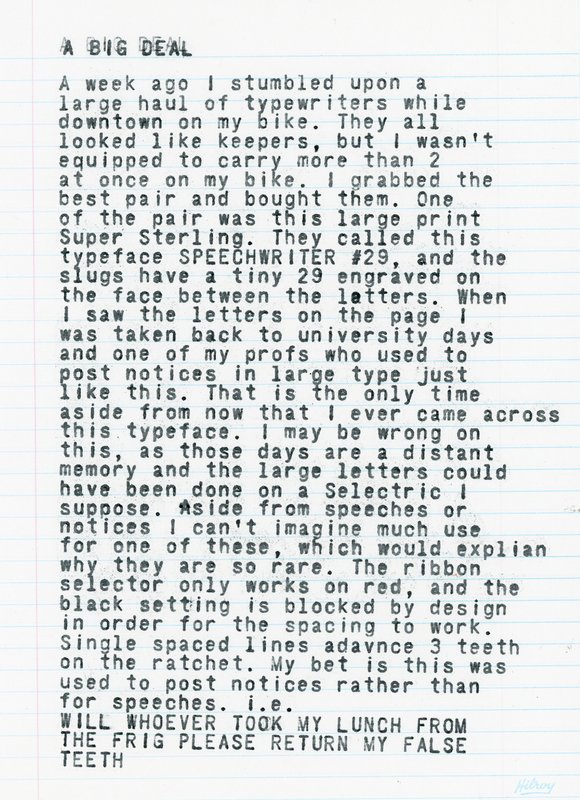 A BIG DEAL
A week ago I stumbled upon a
large haul of typewriters while
downtown on my bike. They all
looked like keepers, but I wasn't
equipped to carry more than 2
at once on my bike. I grabbed the
best pair and bought them. One
of the pair was this large print
Super Sterling. They called this
typeface SPEECHWRITER #29, and the
slugs have a tiny 29 engraved on
the face between the letters. When
I saw the letters on the page I
was taken back to university days
and one of my profs who used to
post notices in large type just
like this. That is the only time
aside from now that I ever came across
this typeface. I may be wrong on
this, as those days are a distant
memory and the large letters could
have been done on a Selectric I
suppose. Aside from speeches or
notices I can't imagine much use
for one of these, which would explian
why they are so rare. The ribbon
selector only works on red, and the
black setting is blocked by design
in order for the spacing to work.
Single spaced lines adavnce 3 teeth
on the ratchet. My bet is this was
used to post notices rather than
for speeches. i.e.
WILL WHOEVER TOOK MY LUNCH FROM
THE FRIG PLEASE RETURN MY FALSE
TEETH
Hilroy